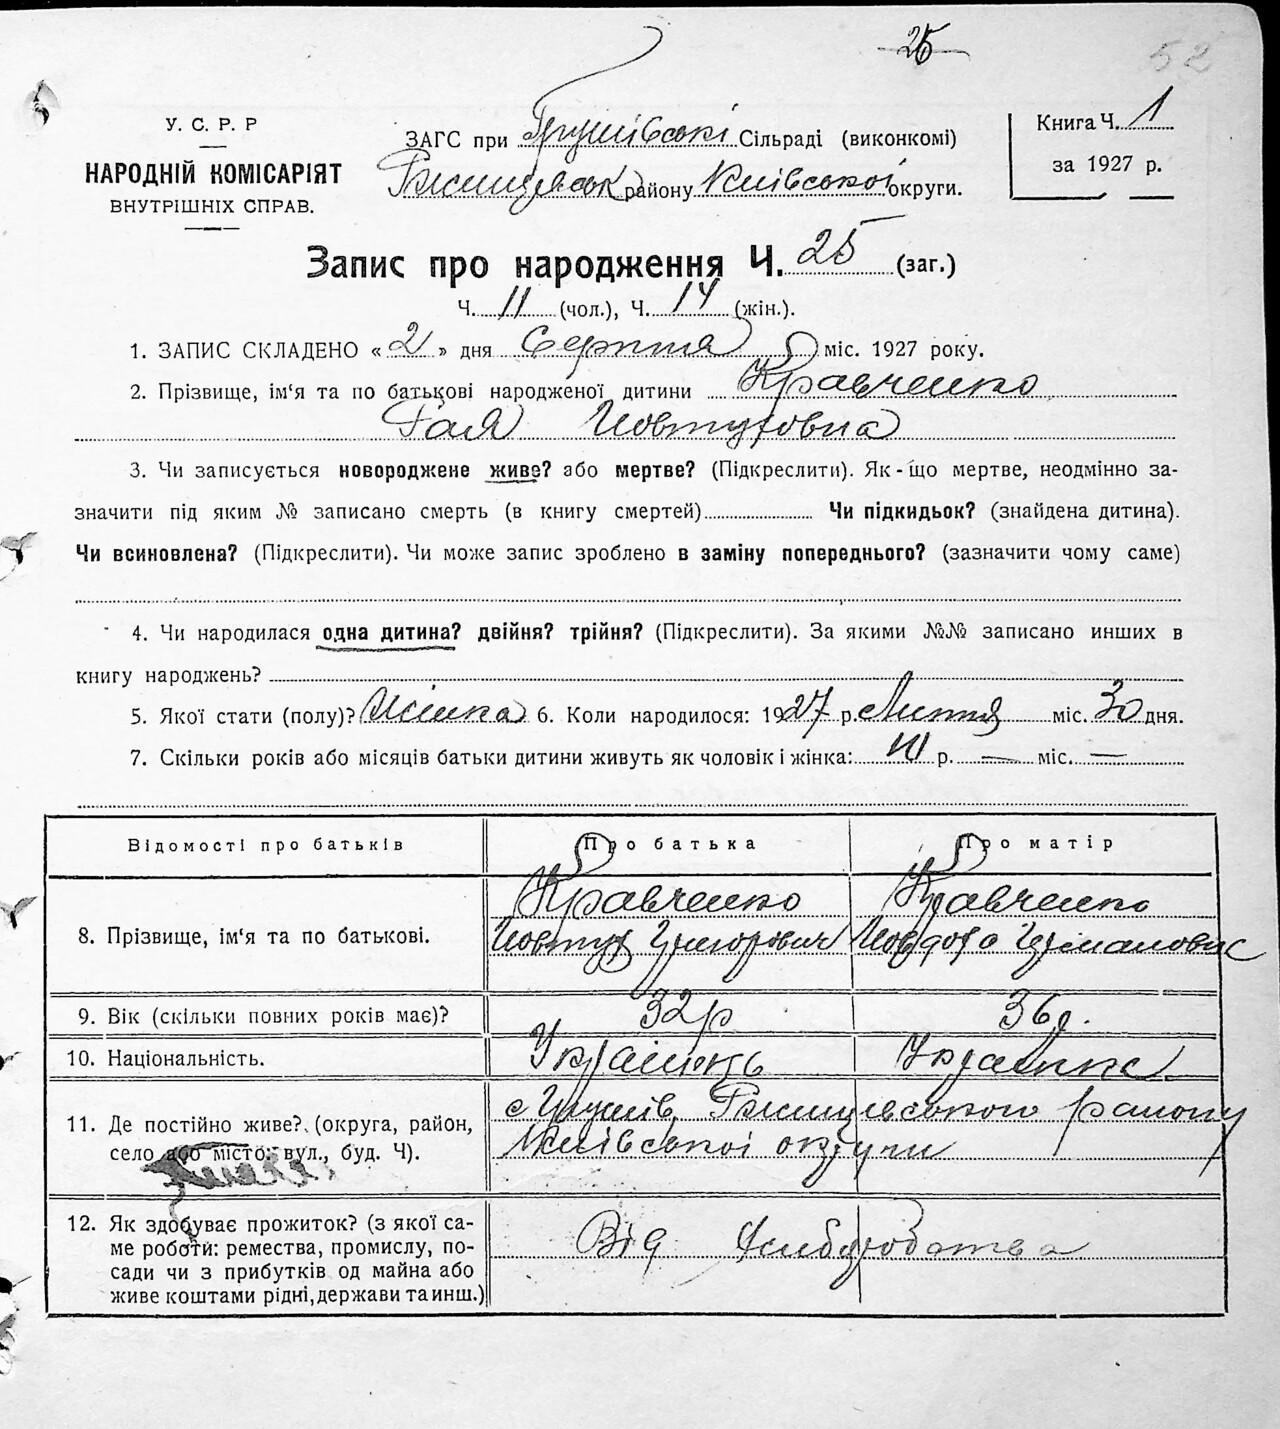 25
52
У. С. Р. Р
НАРОДНІЙ КОМІСАРІЯТ
ВНУТРІШНІХ СПРАВ.
ЗАГС при Грушівські Сільраді (виконкомі)
району Київської округи.
Книга Ч. 1
за 1927 р.
Запис про народження Ч. 25 (заг.)
Ч. 11 (чол.), Ч. 14 (жін.).
1. ЗАПИС СКЛАДЕНО « 2 » дня Серпня міс. 1927 року.
2. Прізвище, ім‘я та по батькові народженої дитини Кравченко
Галя Йовтуховна
3. Чи записується новороджене живе? або мертве? (Підкреслити). Як-що мертве, неодмінно за-
значити під яким № записано смерть (в книгу смертей) Чи підкидьок? (знайдена дитина).
Чи всиновлена? (Підкреслити). Чи може запис зроблено в заміну попереднього? (зазначити чому саме)
4. Чи народилася одна дитина? двійня? трійня? (Підкреслити). За якими №№ записано инших в
книгу народжень?
5. Якої стати (полу)? Жінка 6. Коли народилося: 1927 р. Липня міс. 30 дня.
7. Скільки років або місяців батьки дитини живуть як чоловік і жінка: р. — міс. —
Відомості про батьків Про батька Про матір
8. Прізвище, ім‘я та по батькові. Кравченко Кравченко
Йовтух Григорович Йовдоха
9. Вік (скільки повних років має)? 32р 36р.
10. Національність. Українець Українка
11. Де постійно живе? (округа, район,
село або місто, вул., буд. Ч).
с Грушів, району
Київської округи
12. Як здобуває прожиток? (з якої са-
ме роботи: ремества, промислу, по-
сади чи з прибутків од майна або
живе коштами рідні, держави та инш.)
Від хліборобства